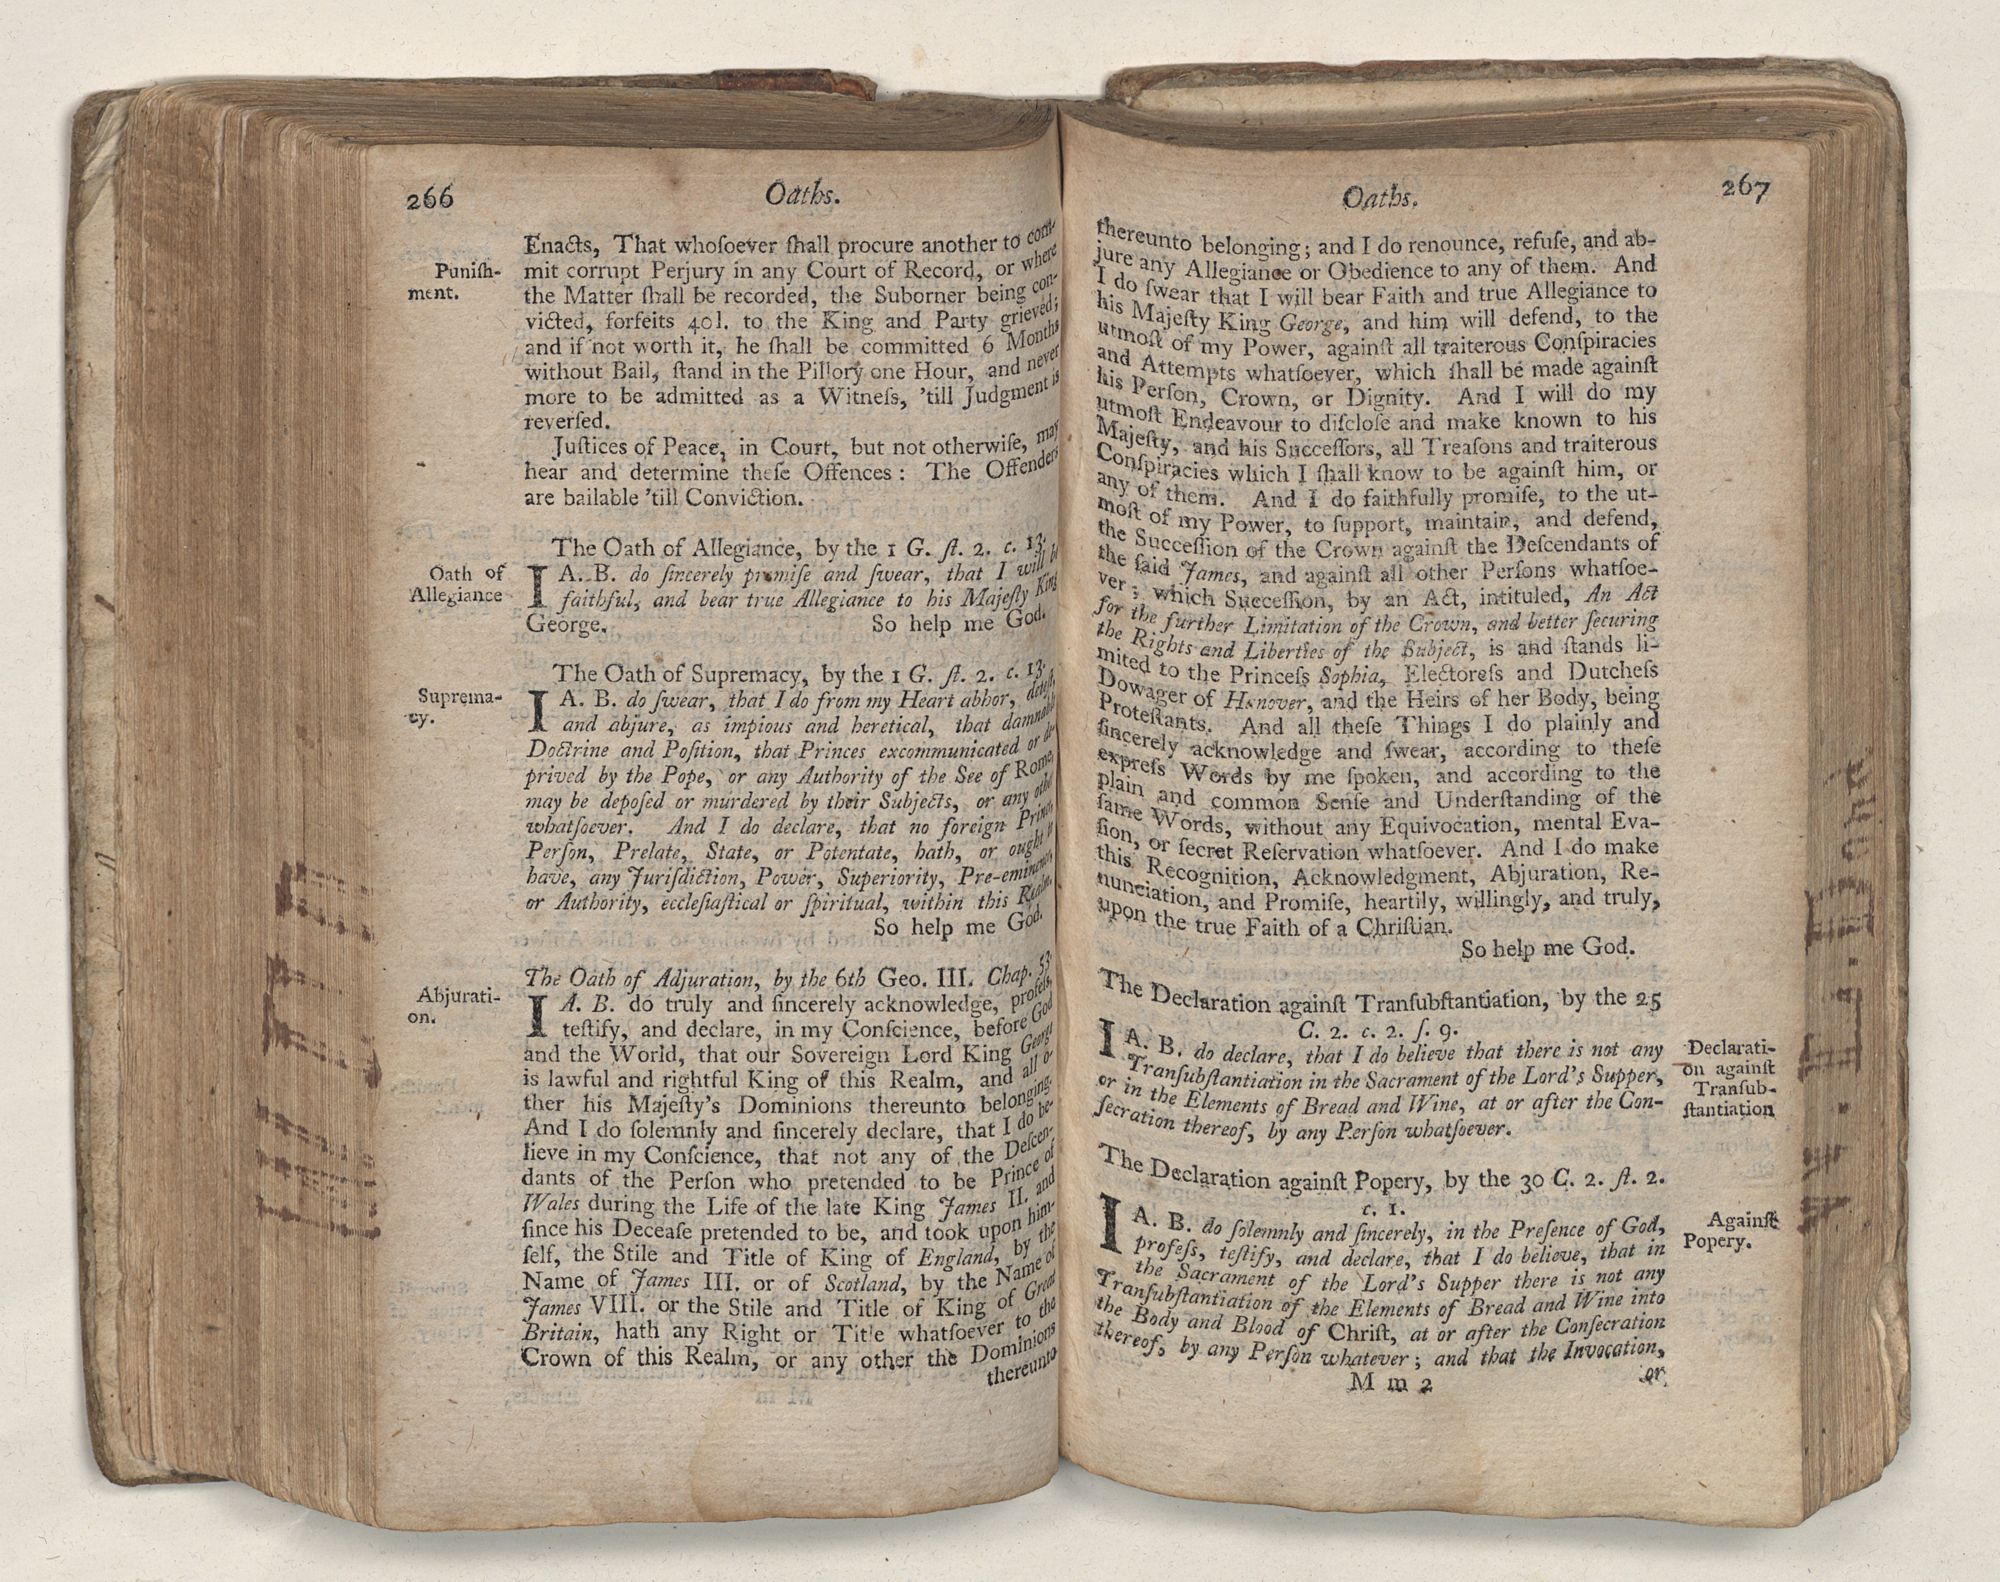 266
Oaths.
Enacts, That whoſoever ſhall procure another to com-
Puniſh-
ment.
mit corrupt Perjury in any Court of Record, or where
the Matter ſhall be recorded, the Suborner being con-
victed, forfeits 40l. to the King and Party grieved;
and if not worth it, he ſhall be committed 6 Months
without Bail, ſtand in the Pillory one Hour, and never
more to be admitted as a Witneſs, 'till Judgment is
reverſed.
Juſtices of Peace, in Court, but not otherwiſe, may
hear and determine theſe Offences: The Offenders
are bailable 'till Conviction.
The Oath of Allegiance, by the 1 G. ſt. 2. c. 13.
Oath of
Allegiance
I A. B. do ſincerely promiſe and ſwear, that I will be
faithful, and bear true Allegiance to his Majeſty King
George. So help me God.
The Oath of Supremacy, by the 1 G. ſt. 2. c. 13.
Suprema-
cy.
I A. B. do ſwear, that I do from my Heart abhor, deteſt,
and abjure, as impious and heretical, that damnable
Doctrine and Poſition, that Princes excommunicated or de-
prived by the Pope, or any Authority of the See of Rome,
may be depoſed or murdered by their Subjects, or any other
whatſoever. And I do declare, that no foreign Prince,
Perſon, Prelate, State, or Potentate, hath, or ought to
have, any Juriſdiction, Power, Superiority, Pre-eminence,
or Authority, eccleſiaſtical or ſpiritual, within this Realm.
So help me God.
The Oath of Adjuration, by the 6th Geo. III. Chap. 53.
Abjurati-
on.
I A. B. do truly and ſincerely acknowledge, profeſs,
teſtify, and declare, in my Conſcience, before God
and the World, that our Sovereign Lord King George
is lawful and rightful King of this Realm, and all o-
ther his Majeſty's Dominions thereunto belonging.
And I do ſolemnly and ſincerely declare, that I do be-
lieve in my Conſcience, that not any of the Deſcen-
dants of the Perſon who pretended to be Prince of
Wales during the Life of the late King James II. and
ſince his Deceaſe pretended to be, and took upon him-
ſelf, the Stile and Title of King of England, by the
Name of James III. or of Scotland, by the Name of
James VIII. or the Stile and Title of King of Great
Britain, hath any Right or Title whatſoever to the
Crown of this Realm, or any other the Dominions
thereunto
Oaths.
267
thereunto belonging; and I do renounce, refuſe, and ab-
jure any Allegiance or Obedience to any of them. And
I do ſwear that I will bear Faith and true Allegiance to
his Majeſty King George, and him will defend, to the
utmoſt of my Power, againſt all traiterous Conſpiracies
and Attempts whatſoever, which ſhall be made againſt
his Perſon, Crown, or Dignity. And I will do my
utmoſt Endeavour to diſcloſe and make known to his
Majeſty, and his Succeſſors, all Treaſons and traiterous
Conſpiracies which I ſhall know to be againſt him, or
any of them. And I do faithfully promiſe, to the ut-
moſt of my Power, to ſupport, maintain, and defend,
the Succeſſion of the Crown againſt the Deſcendants of
the ſaid James, and againſt all other Perſons whatſoe-
ver; which Succeſſion, by an Act, intituled, An Act
for the further Limitation of the Crown, and better ſecuring
the Rights and Liberties of the Subject, is and ſtands li-
mited to the Princeſs Sophia, Electoreſs and Dutcheſs
Dowager of Hanover, and the Heirs of her Body, being
Proteſtants. And all theſe Things I do plainly and
ſincerely acknowledge and ſwear, according to theſe
expreſs Words by me ſpoken, and according to the
plain and common Senſe and Underſtanding of the
ſame Words, without any Equivocation, mental Eva-
ſion, or ſecret Reſervation whatſoever. And I do make
this Recognition, Acknowledgment, Abjuration, Re-
nunciation, and Promiſe, heartily, willingly, and truly,
upon the true Faith of a Chriſtian.
So help me God.
The Declaration againſt Tranſubſtantiation, by the 25
C. 2. c. 2. ſ. 9.
I A. B. do declare, that I do believe that there is not any
Tranſubſtantiation in the Sacrament of the Lord's Supper,
or in the Elements of Bread and Wine, at or after the Con-
ſecration thereof, by any Perſon whatſoever.
Declarati-
on againſt
Tranſub-
ſtantiation
The Declaration againſt Popery, by the 30 C. 2. ſt. 2.
c. 1.
I A. B. do ſolemnly and ſincerely, in the Preſence of God,
profeſs, teſtify, and declare, that I do believe, that in
the Sacrament of the Lord's Supper there is not any
Tranſubſtantiation of the Elements of Bread and Wine into
the Body and Blood of Chriſt, at or after the Conſecration
thereof, by any Perſon whatever; and that the Invocation,
Againſt
Popery.
M m 2
or